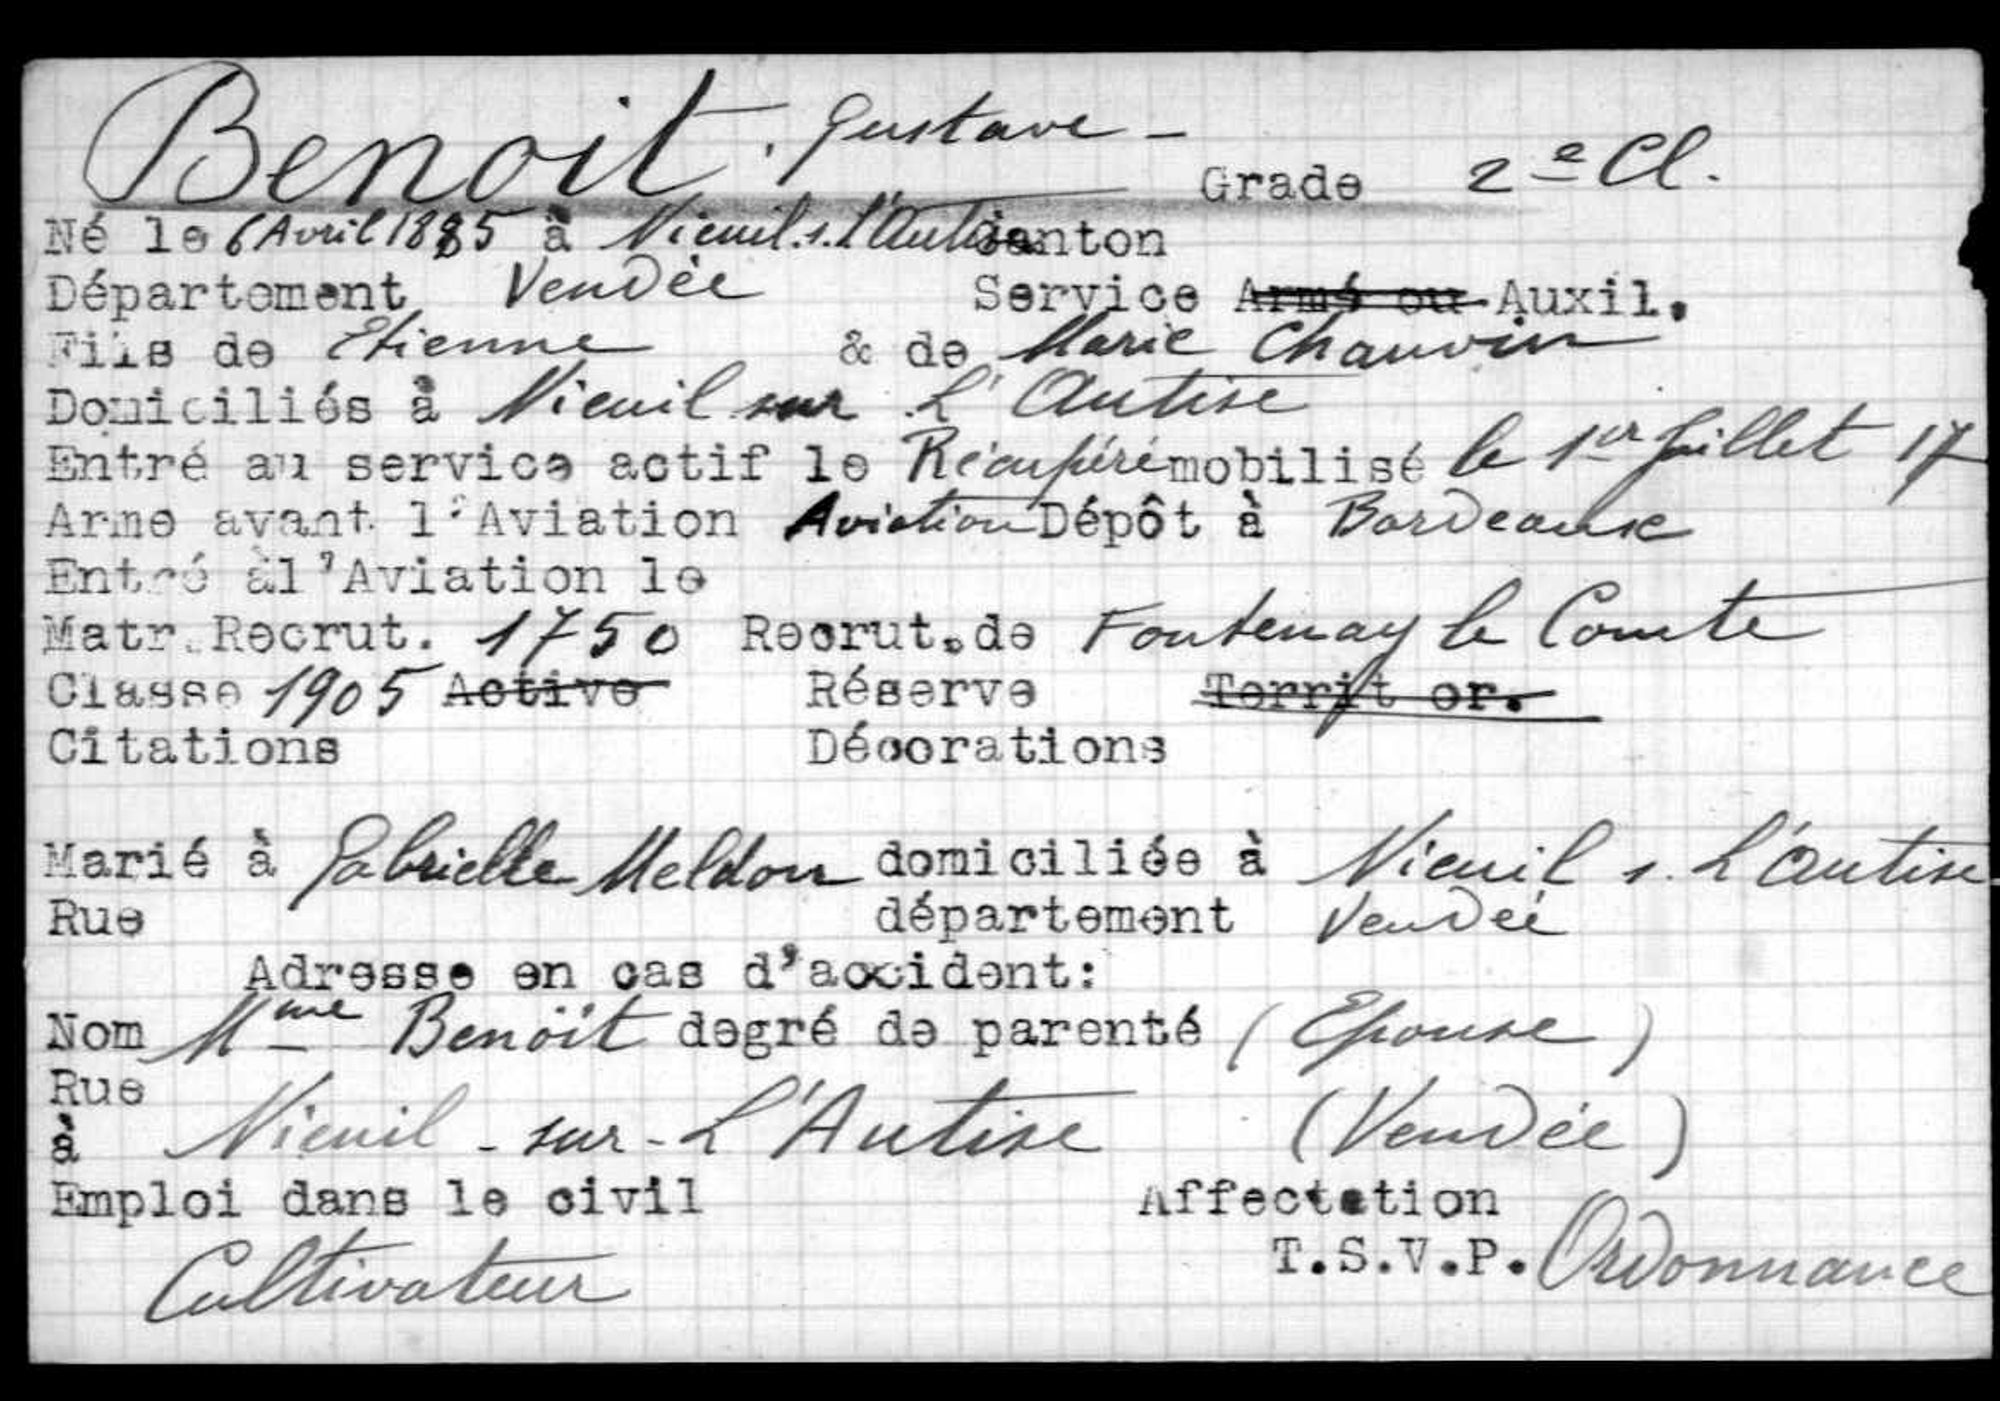 Benoit, Gustave - Grade 2e Cl.
Né le 6 Avril 1885 à Nieuil.s.l'Autise Canton
Département Vendée Service Armé ou Auxil.
Fils de Etienne & de Marie Chauvin
Domiciliés à Nieuil sur L'Autise
Entré au service actif le Récupéré mobilisé le 1er Juillet 17
Arme avant l'Aviation Aviation Dépôt à Bordeaux
Entré àl'Aviation le
Matr.Recrut. 1750 Recrut.de Fontenay le Comte
Classe 1905 Active Réserve Territ or.
Citations Décorations
Marié à Gabrielle Meldon domiciliée à Nieuil s. L'Autise
Rue département Vendée
Adresse en cas d'accident:
Nom Mme Benoit degré de parenté (Epouse)
Rue
à Nieuil - sur - L'Autise (Vendée)
Emploi dans le civil Affectation
Cultivateur T.S.V.P. Ordonnance